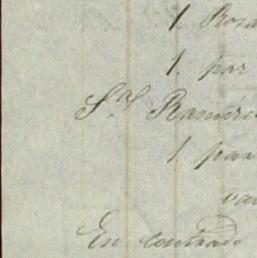 1. Rosa
1. par
S.ral Ramire
1 par
va
En contrado